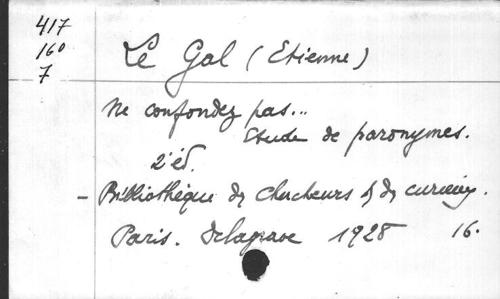 417
160
7
Le Gal (Etienne)
Ne confondez pas...
Etude de paronymes.
2e éd.
- Bibliothèque des chercheurs & des curieux.
Paris. Delagrave 1928 16.